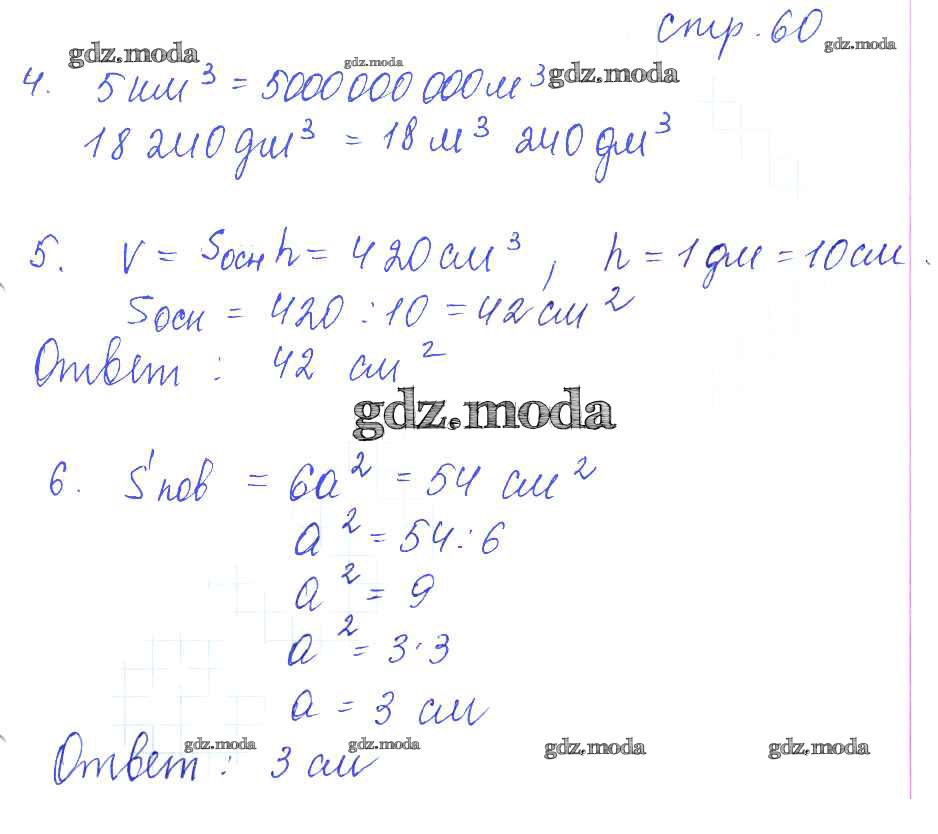 стр. 60
gdz.moda gdz.moda gdz.moda gdz.moda
4. 5 км³ = 5000 000 000 м³
18 240 дм³ = 18 м³ 240 дм³
5. V = Sосн h = 420 см³, h = 1 дм = 10 см.
Sосн = 420 : 10 = 42 см²
Ответ : 42 см²
gdz.moda
6. Sпов = 6a² = 54 см²
a² = 54 : 6
a² = 9
a² = 3·3
a = 3 см
gdz.moda gdz.moda gdz.moda gdz.moda
Ответ : 3 см